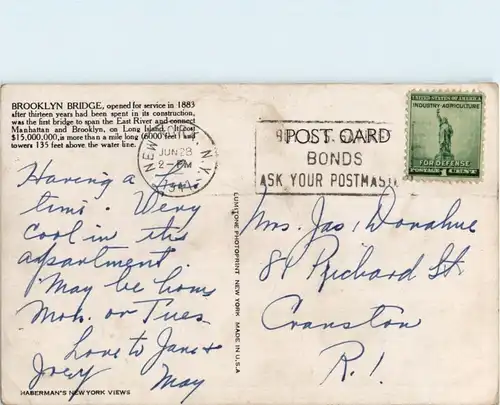 BROOKLYN BRIDGE, opened for service in 1883
after thirteen years had been spent in its construction,
was the first bridge to span the East River and connect
Manhattan and Brooklyn, on Long Island. It cost
$15,000,000, is more than a mile long (6000 feet) and
towers 135 feet above the water line.
NEW N.Y.
JUN 28
2-PM
Having a
time. Very
cool in this
apartment.
May be home
Mon. or Tues.
Love to Jane &
Joey May
HABERMAN'S NEW YORK VIEWS
LUMITONE PHOTOPRINT NEW YORK MADE IN U.S.A.
POST CARD
BONDS
ASK YOUR POSTMASTER
UNITED STATES OF AMERICA
INDUSTRY AGRICULTURE
FOR DEFENSE
POSTAGE 1 CENT
Mrs. Jas. Donahue
81 Prichard St.
Cranston
R.I.